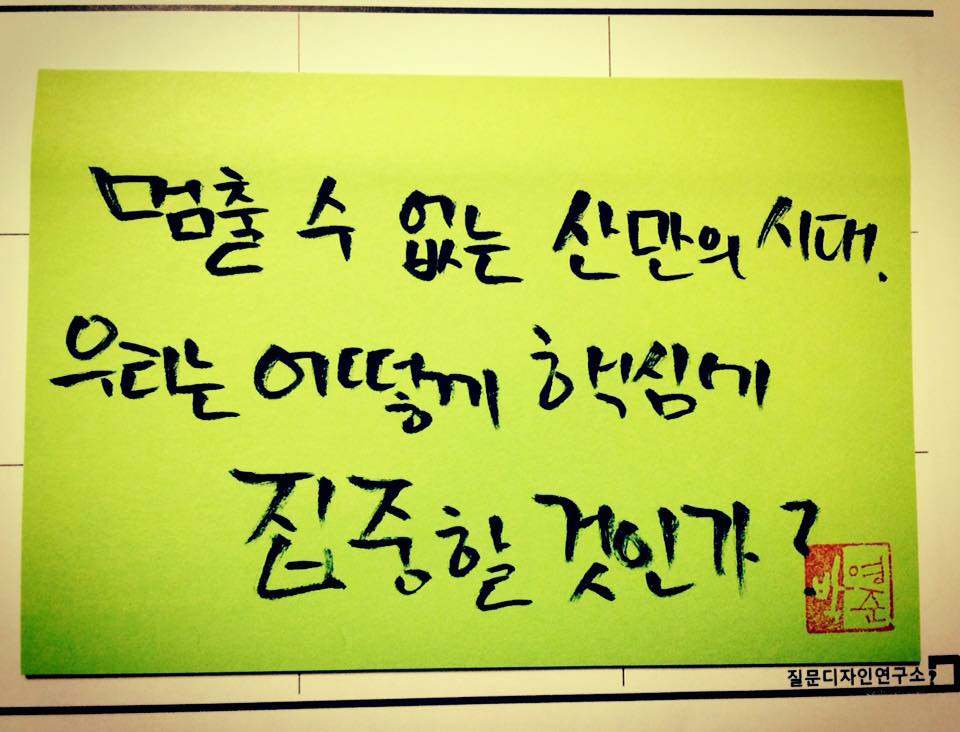 멈출 수 없는 산만의 시대.
우리는 어떻게 핵심에
집중할 것인가?
박영준
질문디자인연구소?